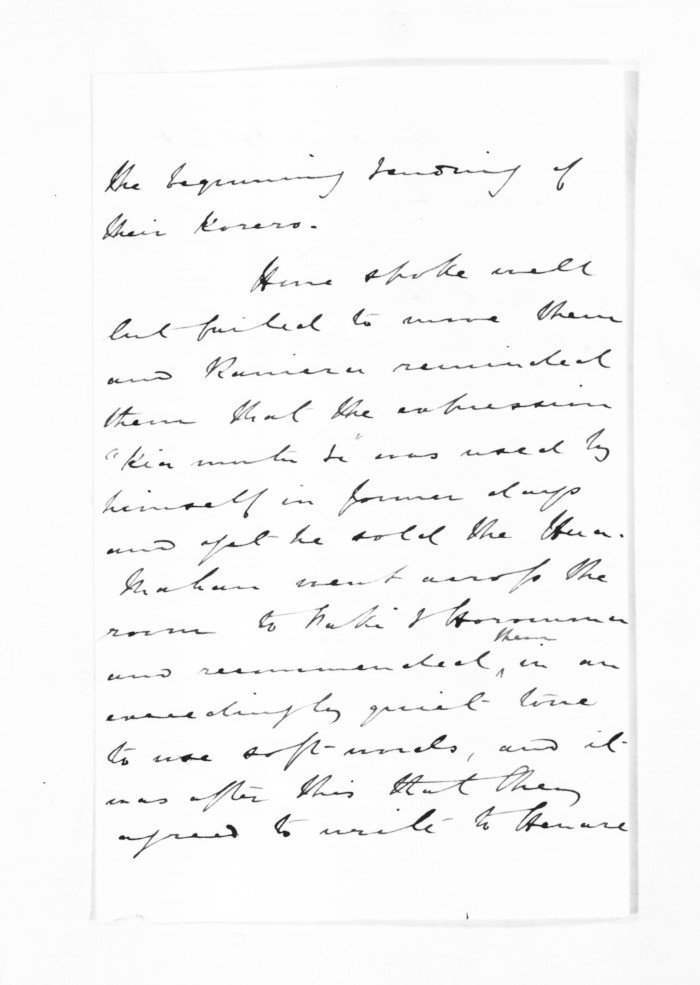 the beginning & ending of
their Korero.
Hine spoke well
but failed to move them
and Raniera reminded
them that the expression
"Kia mutu te" was used by
himself in former days
and yet he sold the Hua.
Mahau went across the
room to Waki &
and recommended ^them in an
exceedingly quiet tone
to use soft-words, and it
was after this that they
agreed to write to Henare